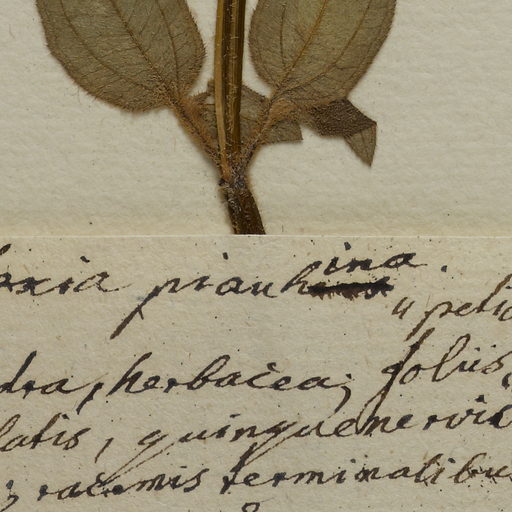 axia piauhina.
"petio
dra, herbacea; foliis
latis, quinquenervis
; racemis terminalibus